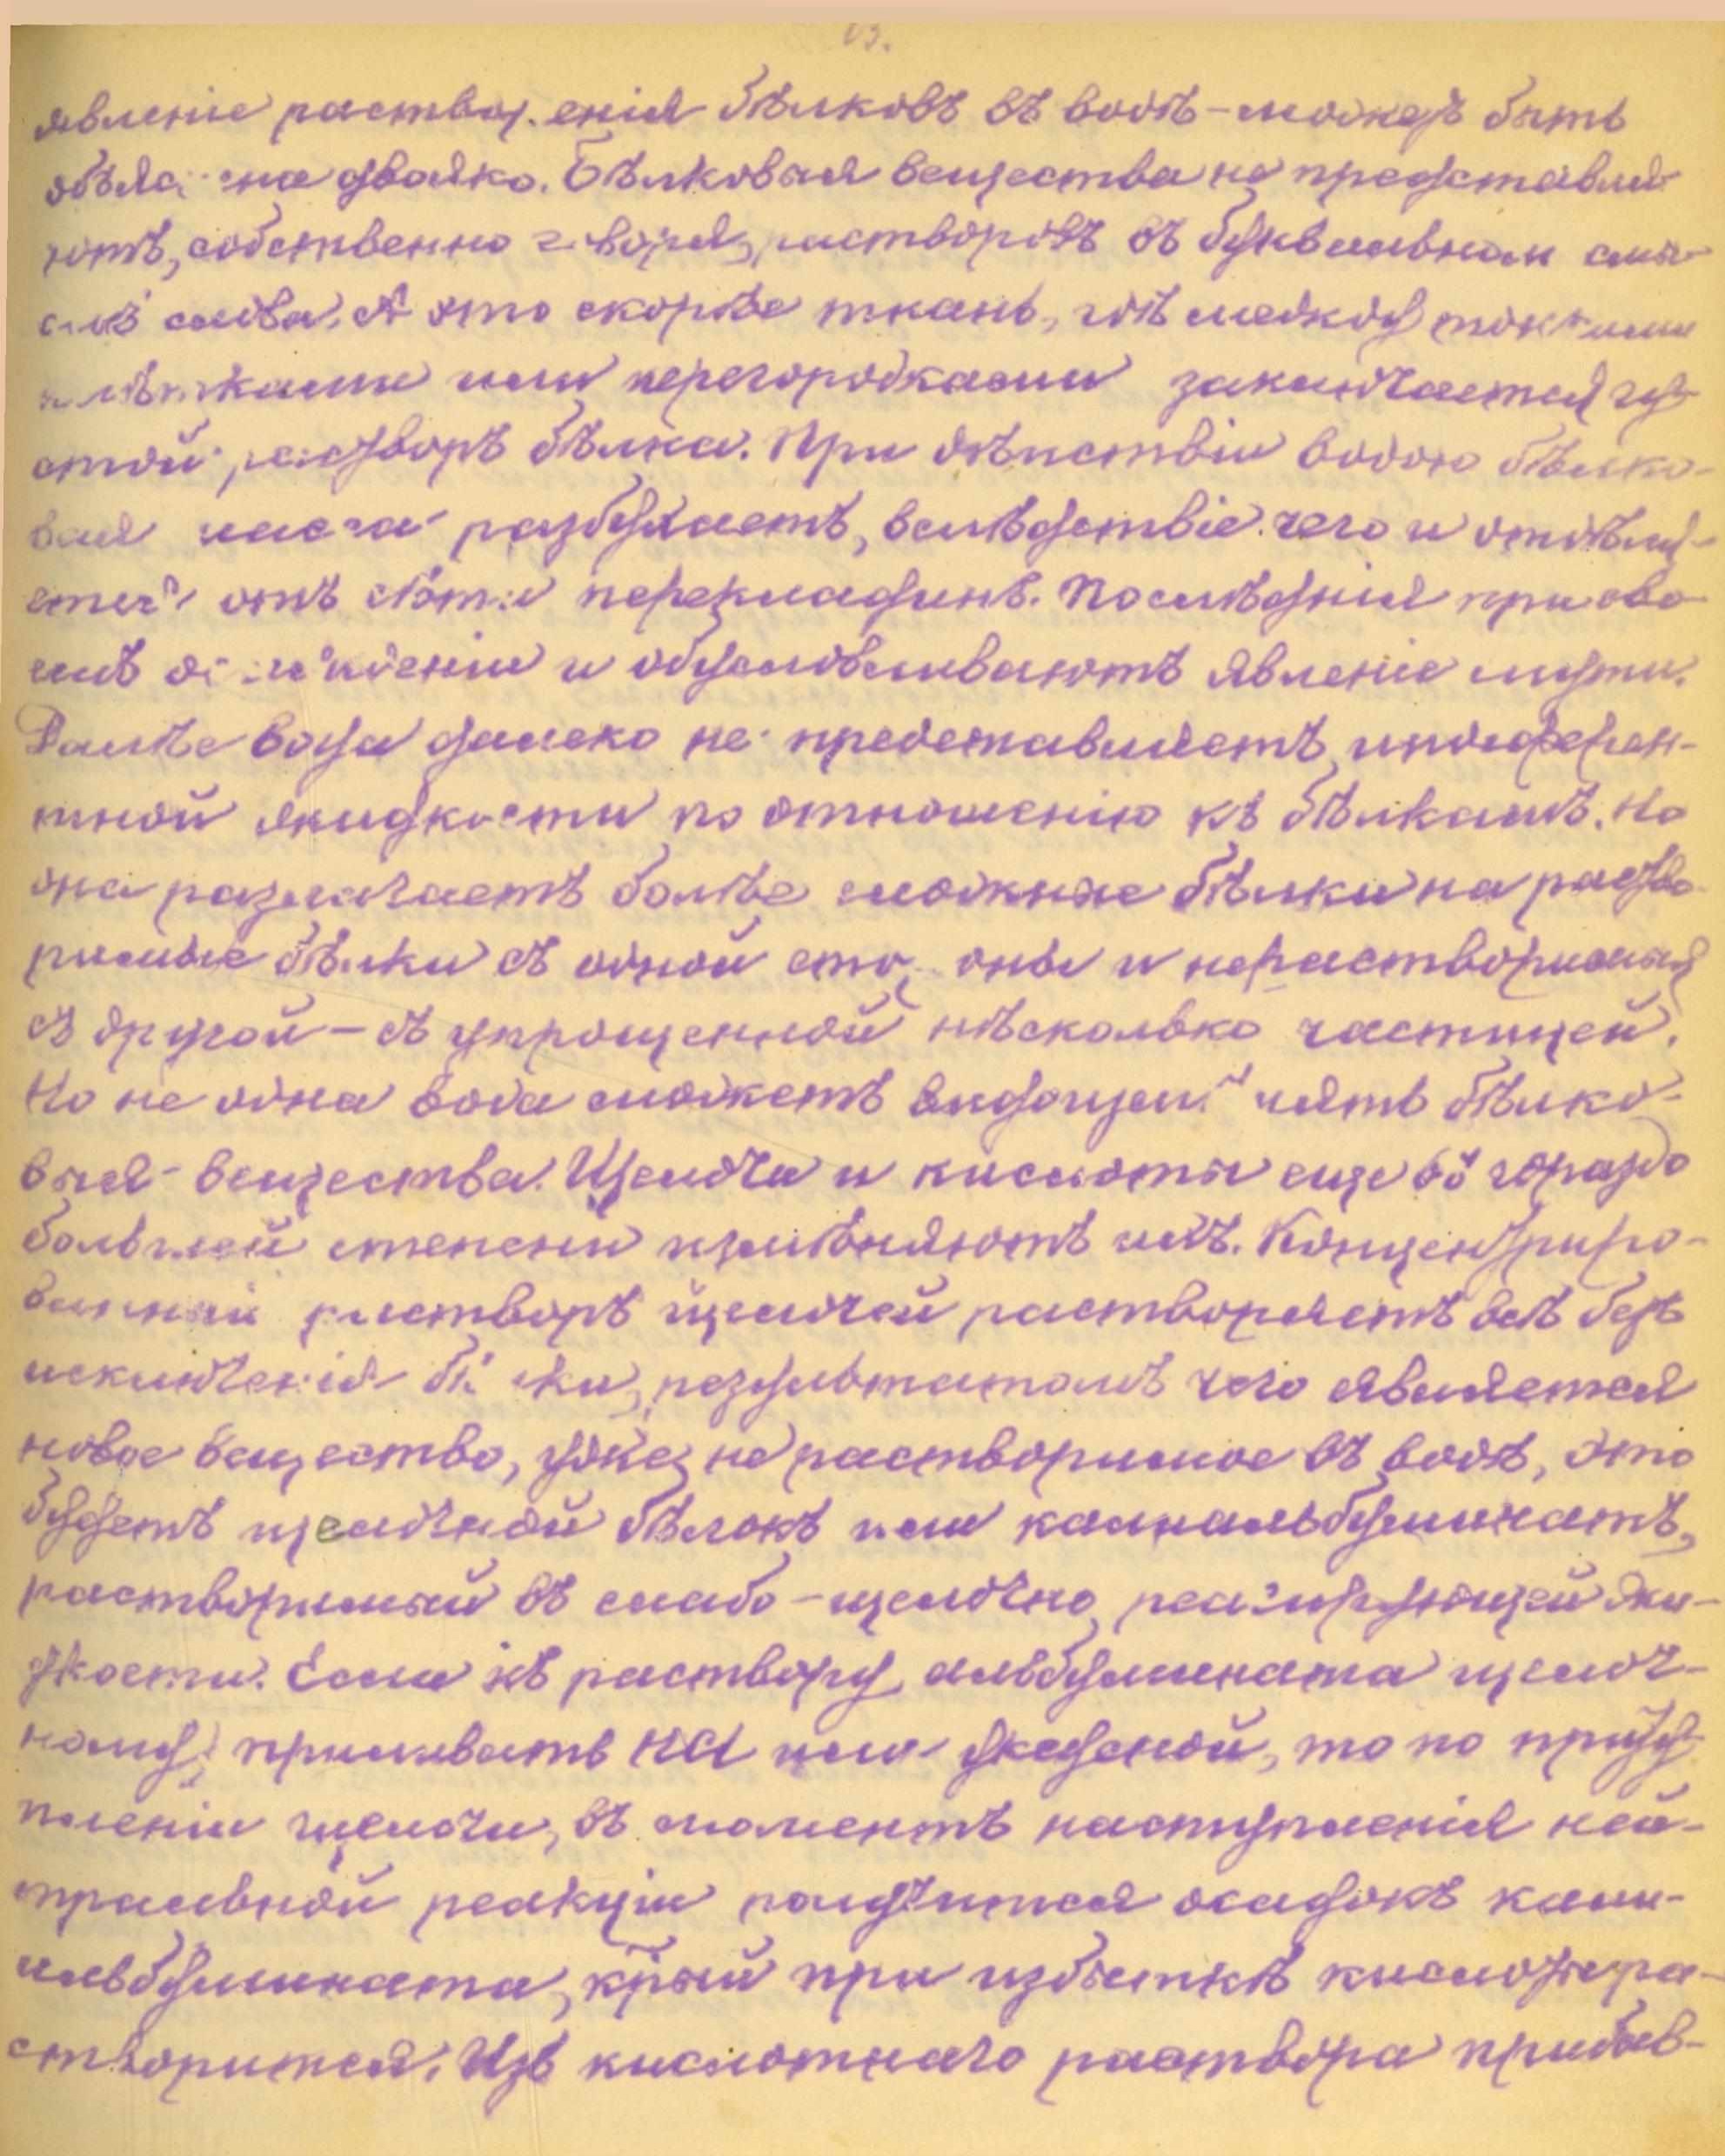 явленіе растворенія бѣлковъ въ водѣ – можетъ быть
объяснена двояко. Бѣлковыя вещества не представля-
ютъ, собственно говоря, растворовъ въ буквальномъ смы-
слѣ слова. А это скорѣе ткань, гдѣ между тонкими
клѣтками или перегородками заключается гу-
стой растворъ бѣлка. При дѣйствіи водою бѣлко-
вая масса разбухаетъ, вслѣдствіе чего и отдѣля-
ется отъ сѣти перекладинъ. Послѣднія при сво-
емъ осажденіи и обусловливаютъ явленіе мути.
Далѣе вода далеко не представляетъ индифферен-
тной жидкости по отношенію къ бѣлкамъ. Но
она разлагаетъ болѣе сложные бѣлки на раство-
римые бѣлки съ одной стороны и нерастворимый
съ другой – съ упрощенной нѣсколько частицей.
Но не одна вода можетъ видоизмѣнять бѣлко-
выя вещества. Щелочи и кислоты еще въ гораздо
большей степени измѣняютъ ихъ. Концентриро-
ванный растворъ щелочей растворяетъ всѣ безъ
исключенія бѣлки, результатомъ чего является
новое вещество, уже не растворимое въ водѣ, это
будетъ щелочной бѣлокъ или калиальбуминатъ,
растворимый въ слабо-щелочно реагирующей жи-
дкости. Если къ раствору альбумината щелоч-
ному приливать HCl или уксусной, то по приту-
пленіи щелочи, въ моментъ наступленія ней-
тральной реакціи получится осадокъ кали-
альбумината, крый при избыткѣ кислоты ра-
створится. Изъ кислотнаго раствора прибав-